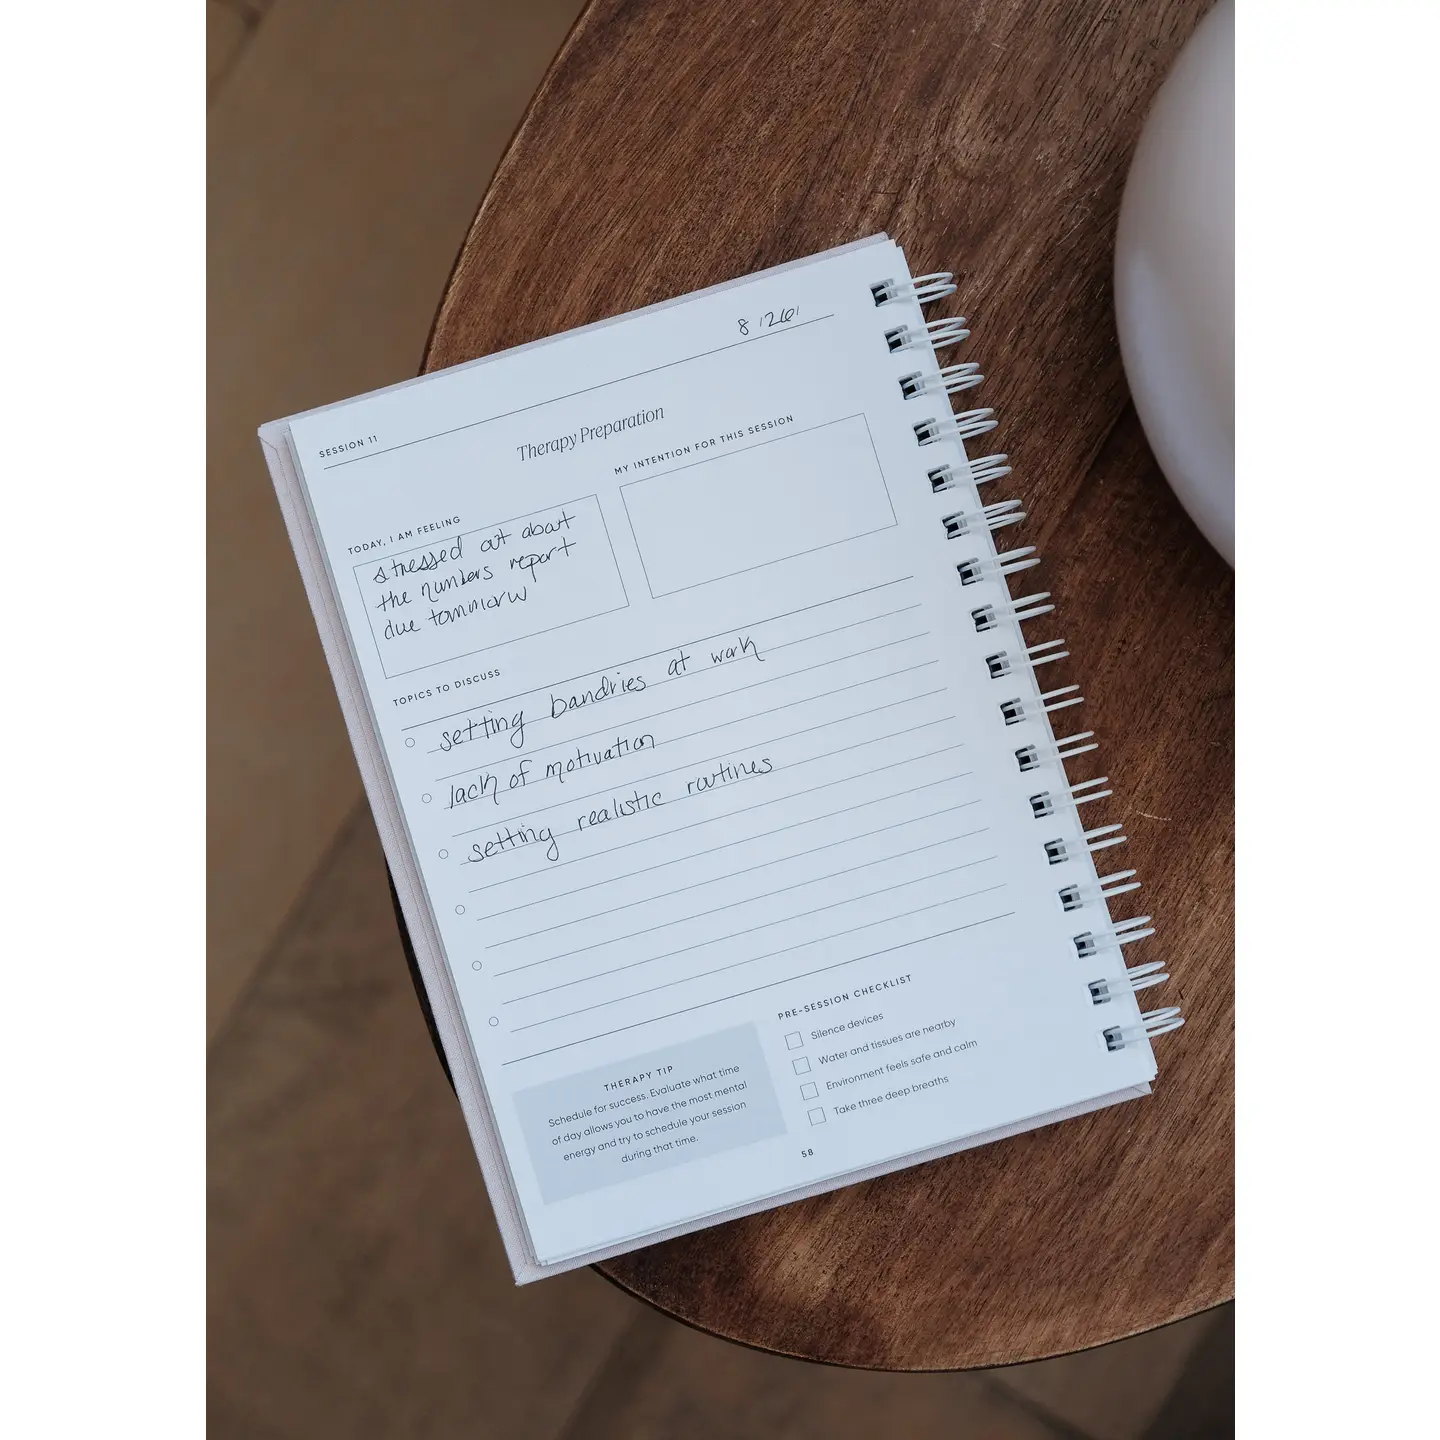 8/26/
SESSION 11
Therapy Preparation
TODAY, I AM FEELING
stressed out about
the numbers report
due tommorow
MY INTENTION FOR THIS SESSION
TOPICS TO DISCUSS
setting bandries at work
lack of motivation
setting realistic routines
THERAPY TIP
Schedule for success. Evaluate what time
of day allows you to have the most mental
energy and try to schedule your session
during that time.
PRE-SESSION CHECKLIST
Silence devices
Water and tissues are nearby
Environment feels safe and calm
Take three deep breaths
58